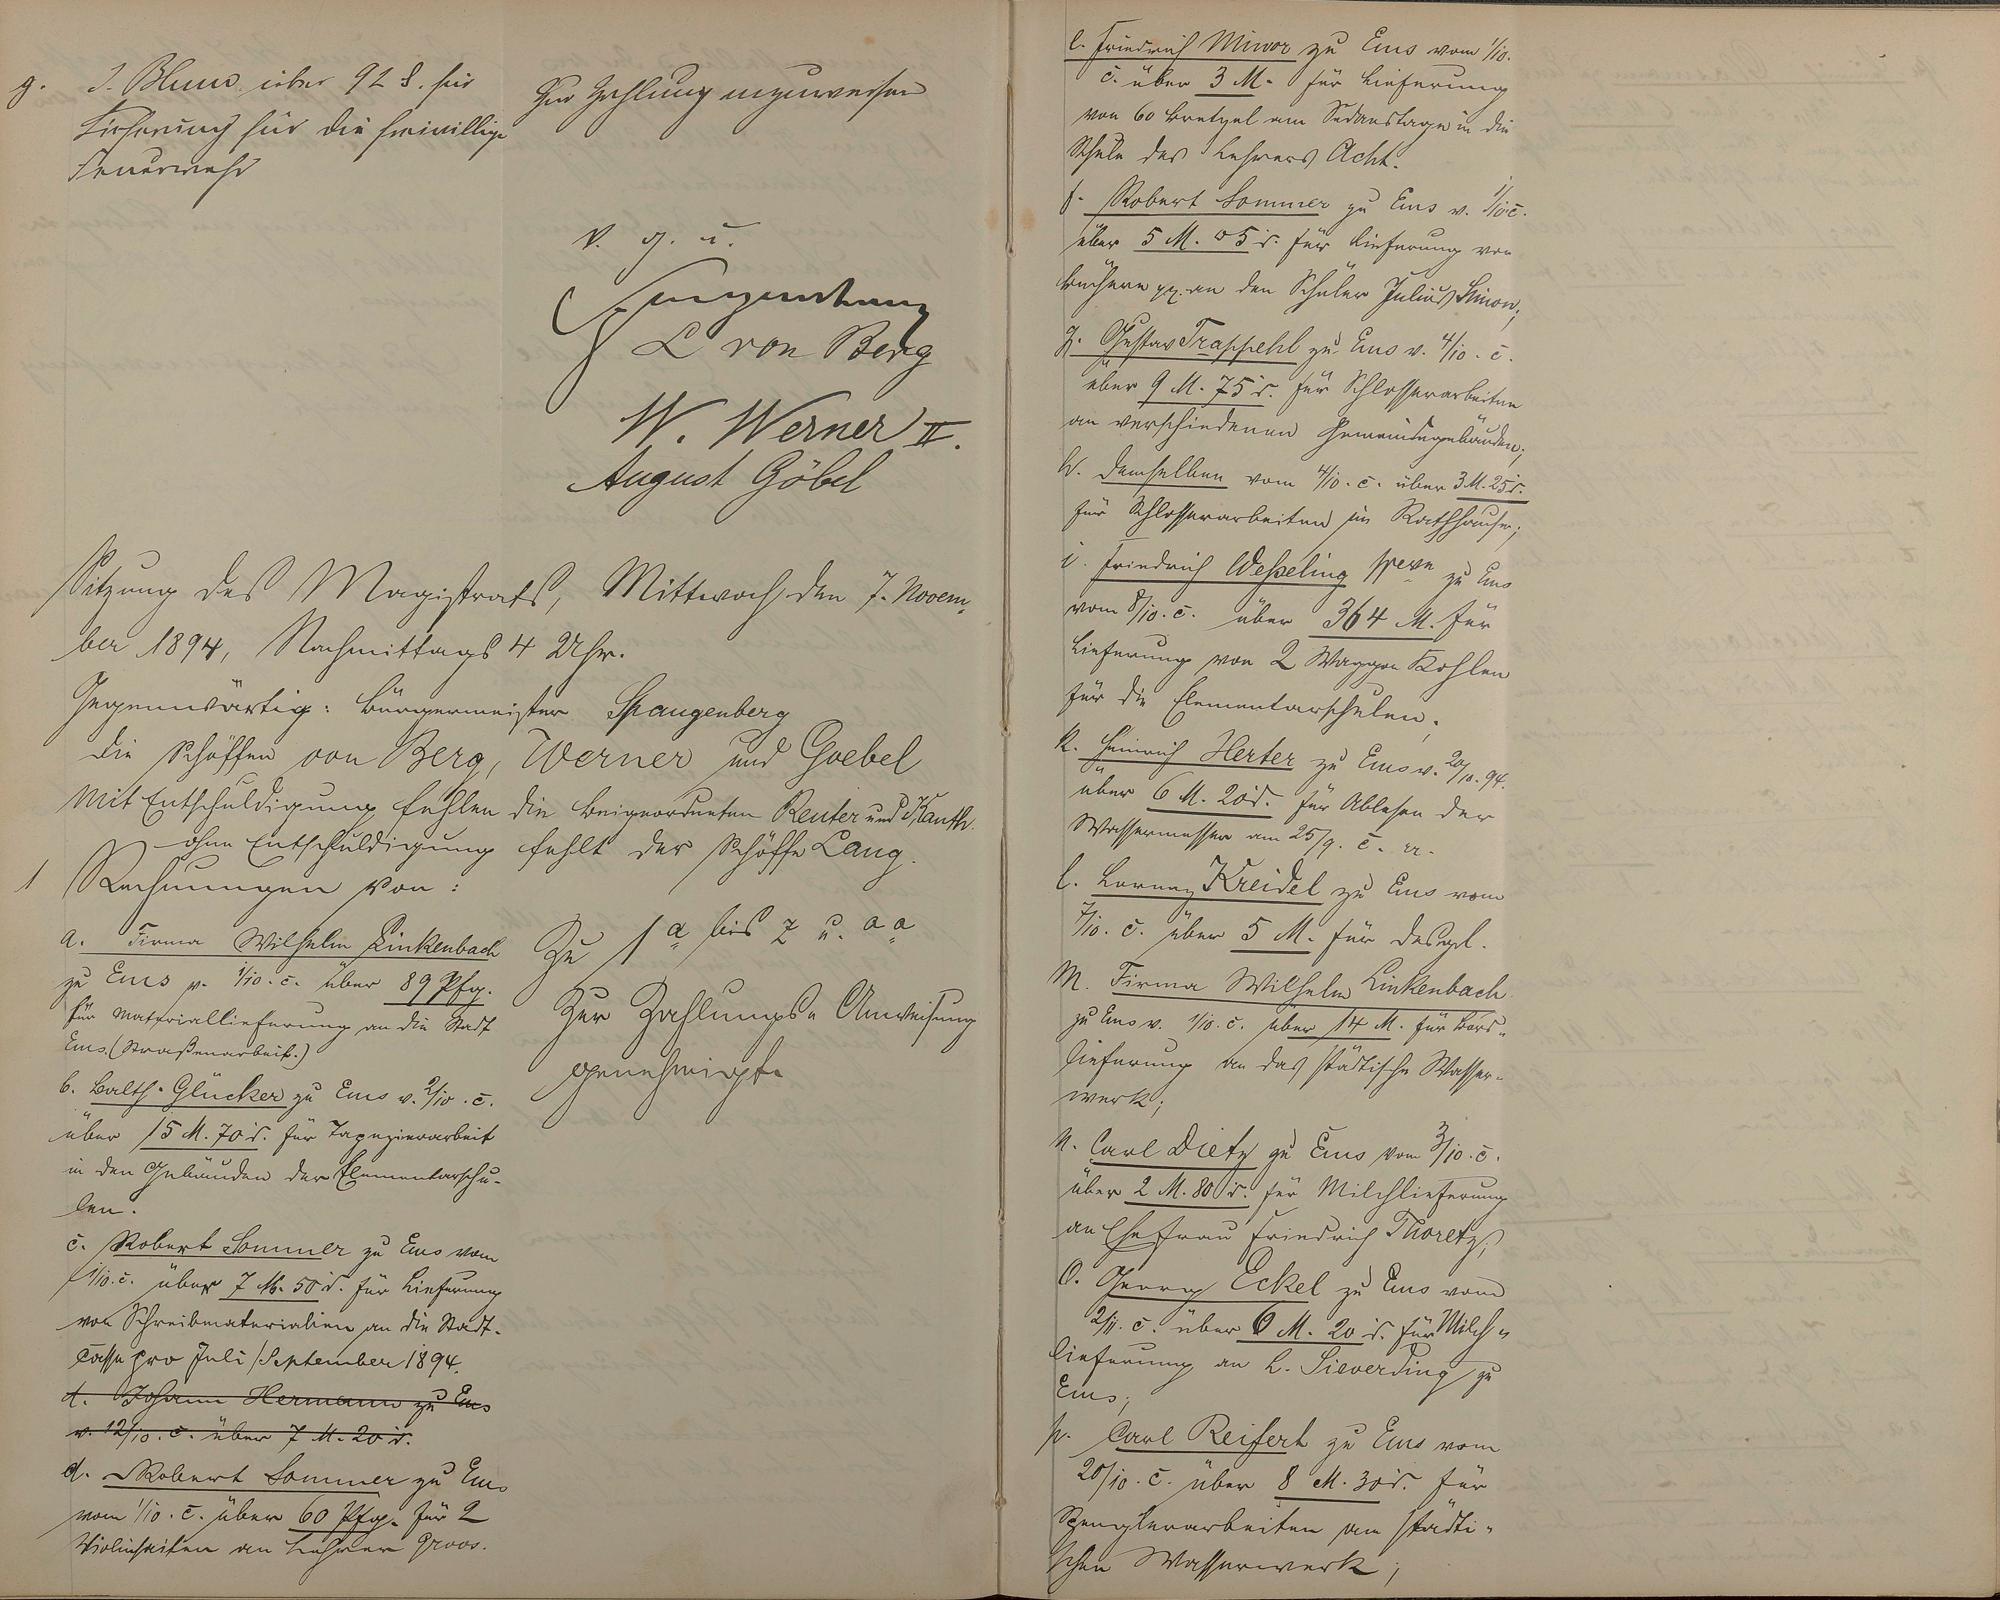 g. J. Blum über 92 d. für
Lieferung für die freiwillige
Feuerwehr
Zur Zahlung anzuweisen
v. g. u.
Spangenberg
L von Berg
W. Werner II.
August Göbel
Sitzung des Magistrats, Mittwoch den 7. Novem-
ber 1894, Nachmittags 4 Uhr.
Gegenwärtig: Bürgermeister Spangenberg
die Schöffen von Berg, Werner und Goebel
Mit Entschuldigung fehlen die Beigeordneten Reuter und Kauth.
ohne Entschuldigung fehlt der Schöffe Lang.
1 Rechnungen von:
a. Firma Wilhelm Linkenbach
zu Ems v. 1/10. c. über 89 Pfg.
für Materiallieferung an die Stadt
Ems (Straßenarbeit.)
b. Balth. Glücker zu Ems v. 2/10. c.
über 15 M. 70 d. für Tapezierarbeit
in den Gebäuden der Elementarschu-
len.
c. Robert Sommer zu Ems vom
1/10. c. über 7 M. 50 d. für Lieferung
von Schreibmaterialien an die Stadt-
casse pro Juli/September 1894.
d. Johann Hermann zu Ems
v. 12/10. c. über 7 M. 20 d.
d. Robert Sommer zu Ems
vom 1/10. c. über 60 Pfg. für 2
Violinsaiten an Lehrer Groos.
Zu 1 a bis z u. aa
Zur Zahlungs-Anweisung
genehmigt.
e. Friedrich Minor zu Ems vom 1/10.
c. über 3 M. für Lieferung
von 60 Bretzel am Sedanstage in die
Schule des Lehrers Acht.
f. Robert Sommer zu Ems v. 1/10 c.
über 5 M. 05 d. für Lieferung von
Büchern pp. an den Schüler Julius Simon;
g. Gustav Trappehl zu Ems v. 4/10. c.
über 9 M. 75 d. für Schlosserarbeiten
an verschiedenen Gemeindegebäuden;
h. demselben vom 4/10. c. über 3 M. 25 d.
für Schlosserarbeiten im Rathhause;
i. Friedrich Weßeling zu Ems
vom 8/10. c. über 364 M. für
Lieferung von 2 Waggon Kohlen
für die Elementarschulen;
k. Heinrich Herter zu Ems v. 20/10. 94.
über 6 M. 20 d. für Ablesen der
Wassermesser am 25/9. c.
l. Lorenz Kreidel zu Ems vom
7/10. c. über 5 M. für desgl.
m. Firma Wilhelm Linkenbach
zu Ems v. 1/10. c. über 14 M. für
lieferung an das städtische Wasser-
werk;
n. Carl Dietz zu Ems vom 3/10. c.
über 2 M. 80 d. für Milchlieferung
an Ehefrau Friedrich Thoretz;
o. Georg Eckel zu Ems vom
2/11. c. über 6 M. 20 d. für Milch-
lieferung an L. Sieverding zu
Ems;
p. Carl Reifert zu Ems vom
20/10. c. über 8 M. 30 d. für
Spenglerarbeiten am städti-
schen Wasserwerk;